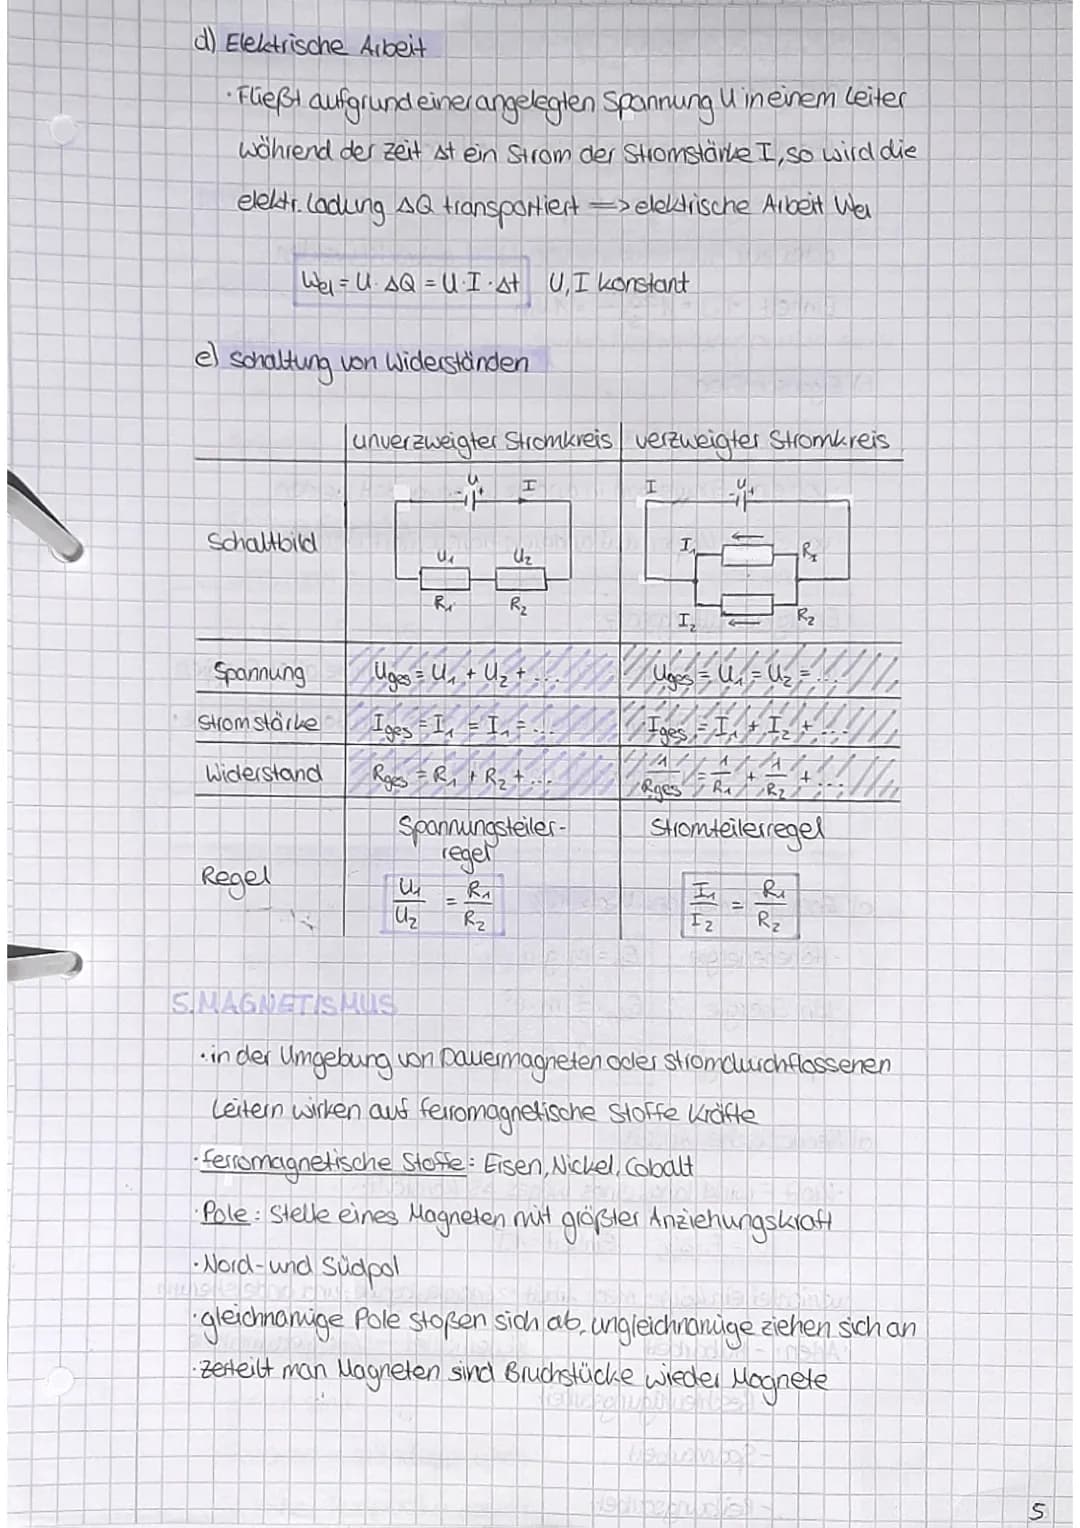 d) Elektrische Arbeit
· Fließt aufgrund einer angelegten Spannung U in einem Leiter
während der Zeit Δt ein Strom der Stromstärke I, so wird die
elektr. Ladung ΔQ transportiert => elektrische Arbeit Wel
Wel = U · ΔQ = U · I · Δt U, I konstant
e) Schaltung von Widerständen
unverzweigter Stromkreis verzweigter Stromkreis
Schaltbild
U
- +
I
U₁ U₂
R₁ R₂
I
U
- +
I₁ R₁
I₂ R₂
Spannung Uges = U₁ + U₂ + ... Uges = U₁ = U₂ = ...
Stromstärke Iges = I₁ = I₁ = ... Iges = I₁ + I₂ + ...
Widerstand Rges = R₁ + R₂ + ... 1/Rges = 1/R₁ + 1/R₂ + ...
Spannungsteiler- Stromteilerregel
regel
Regel U₁/U₂ = R₁/R₂ I₁/I₂ = R₁/R₂
5. MAGNETISMUS
· in der Umgebung von Dauermagneten oder stromdurchflossenen
Leitern wirken auf ferromagnetische Stoffe Kräfte
· ferromagnetische Stoffe: Eisen, Nickel, Cobalt
· Pole: Stelle eines Magneten mit größter Anziehungskraft
· Nord- und Südpol
· gleichnamige Pole stoßen sich ab, ungleichnamige ziehen sich an
· zerteilt man Magneten sind Bruchstücke wieder Magnete
5